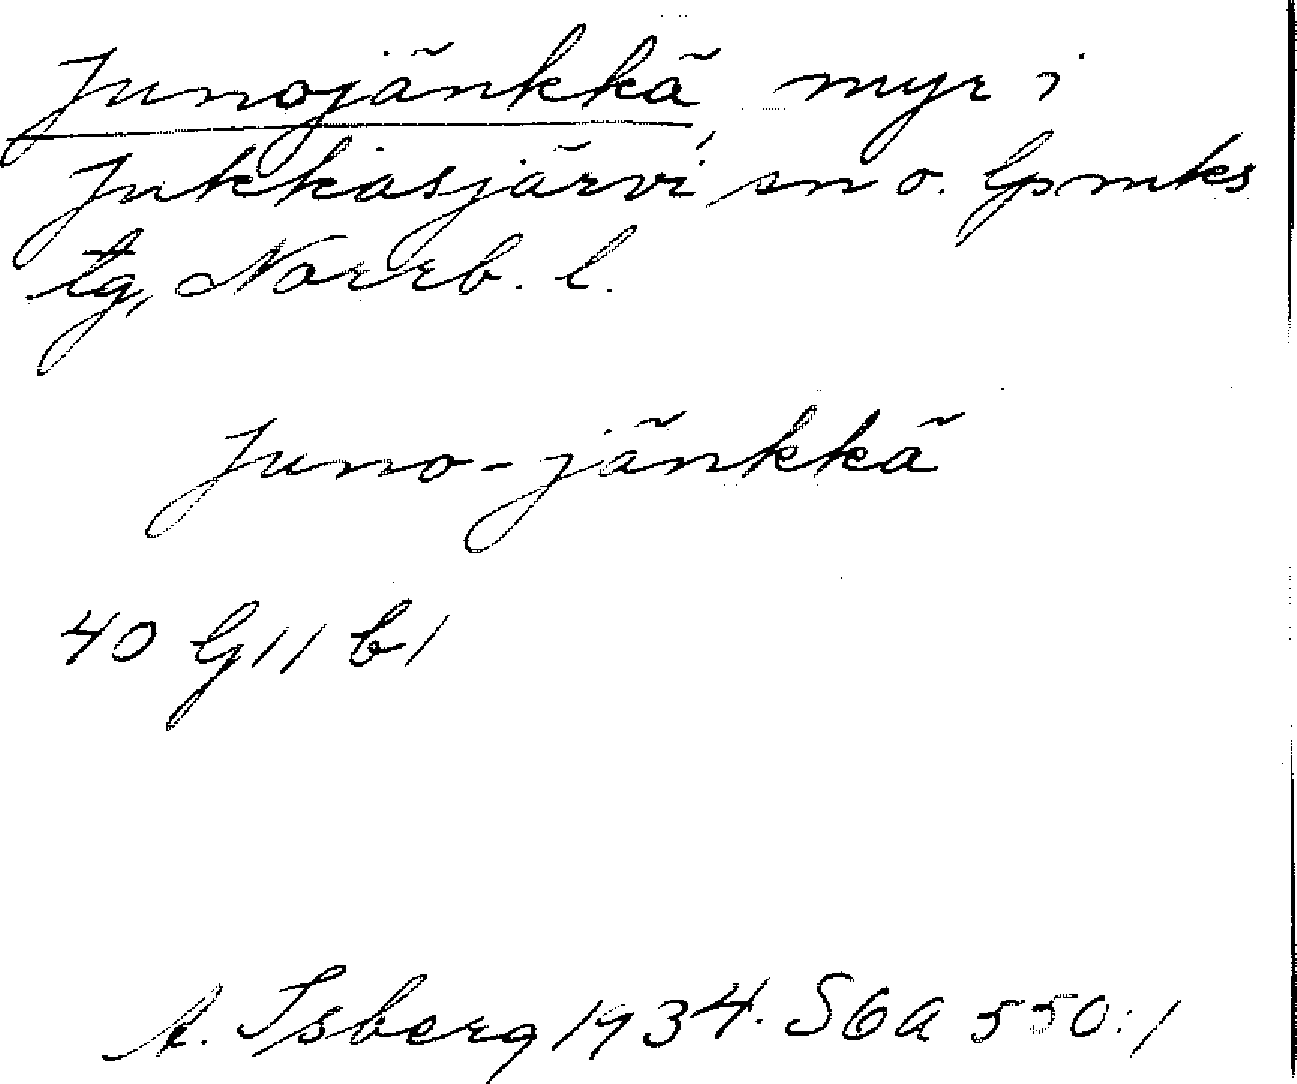 Junojänkkä myr i
Jukkasjärvi sn o. lpmks
tg, Norrb. l.
Juno-jänkkä
40 G 11 b 1
A. Isberg 1934. SGA 550:1